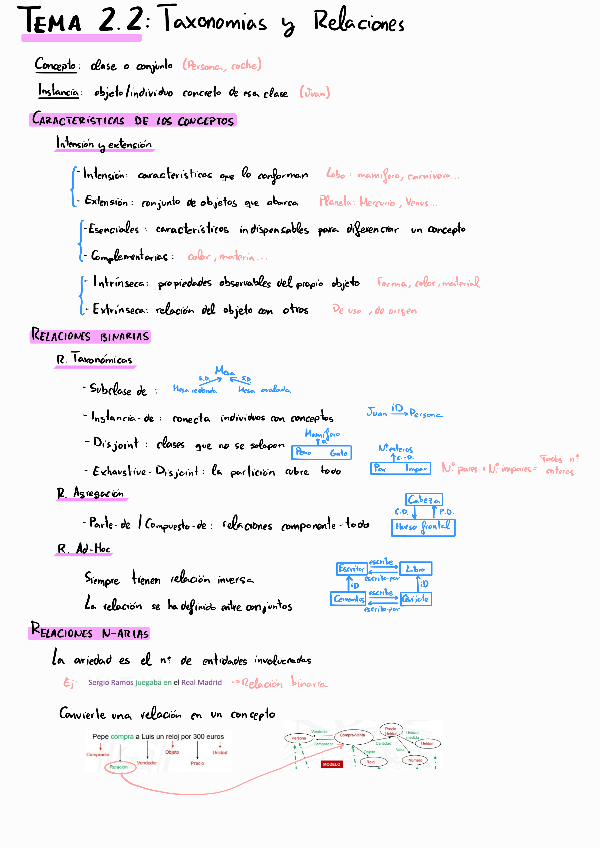 TEMA 2.2: Taxonomías y Relaciones
Concepto: clase o conjunto (Persona, coche)
Instancia: objeto/individuo concreto de esa clase (Juan)
CARACTERÍSTICAS DE LOS CONCEPTOS
Intensión y extensión
- Intensión: características que lo conforman Lobo: mamífero, carnívoro...
- Extensión: conjunto de objetos que abarca Planeta: Mercurio, Venus...
- Esenciales: características indispensables para diferenciar un concepto
- Complementarias: color, materia...
- Intrínseca: propiedades observables del propio objeto Forma, color, material
- Extrínseca: relación del objeto con otros De uso, de origen
RELACIONES BINARIAS
R. Taxonómicas
Mesa
S.D. S.D.
- Subclase de: Mesa redonda Mesa ovalada
- Instancia-de: conecta individuos con conceptos Juan iD Persona
- Disjoint: clases que no se solapan
Mamífero
Perro Gato
- Exhaustive-Disjoint: la partición cubre todo
Nº enteros
C.D.
Par Impar
Nº pares + Nº impares = Todos nº enteros
R. Agregación
- Parte-de / Compuesto-de: relaciones componente-todo
Cabeza
C.D. P.D.
Hueso frontal
R. Ad-Hoc
Siempre tienen relación inversa
La relación se ha definido entre conjuntos
Escritor escribe Libro
escrito-por
iD iD
Cervantes escribe Quijote
escrito-por
RELACIONES N-ARIAS
La ariedad es el nº de entidades involucradas
Ej: Sergio Ramos juegaba en el Real Madrid → Relación binaria
Convierte una relación en un concepto
Pepe compra a Luis un reloj por 300 euros
Comprador Relación Vendedor Objeto Precio Unidad
Persona Vendedor Comprador Compra-Venta
Objeto Cantidad
Reloj Número
MODELO